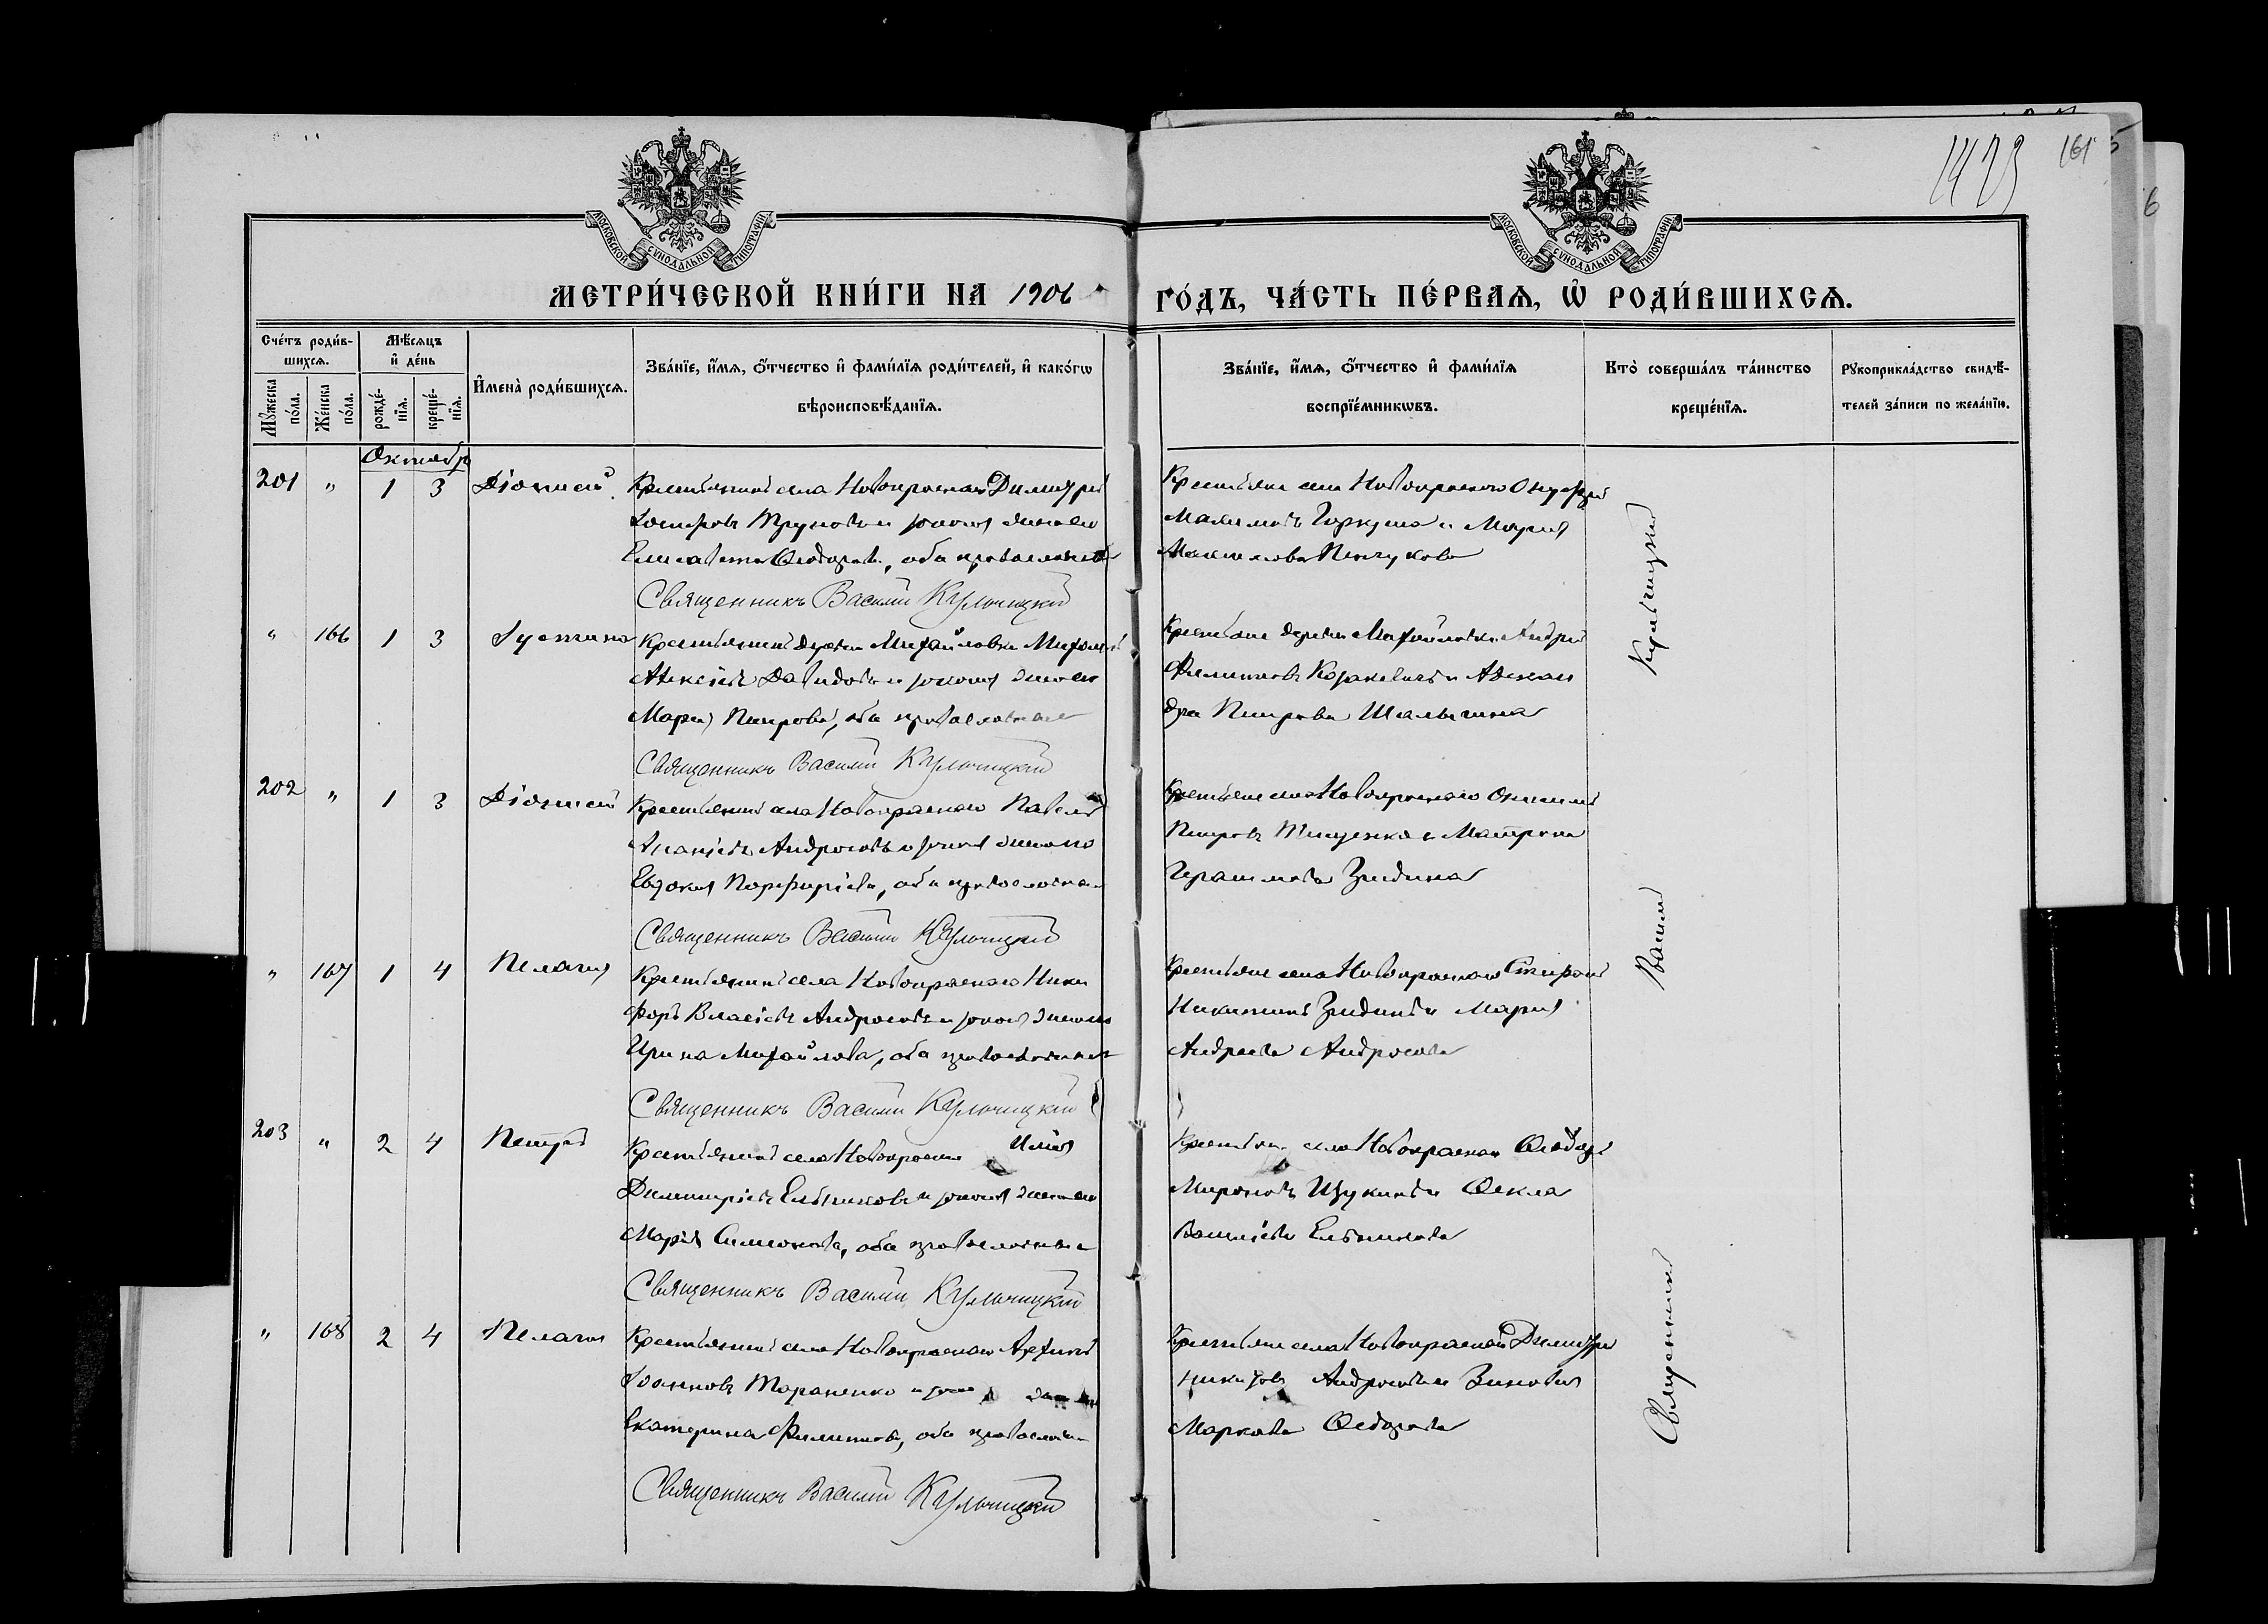 1423 161
МОСКОВСКОЙ СѴНОДАЛЬНОЙ ТИПОГРАФІИ
МОСКОВСКОЙ СѴНОДАЛЬНОЙ ТИПОГРАФІИ
МЕТРИ́ЧЕСКОЙ КНИ́ГИ НА 1906 ГО́ДЪ, ЧА́СТЬ ПЕ́РВАѦ, Ѡ РОДИ́ВШИХСѦ.
Сче́тъ роди́в-
шихсѧ.
Мꙋ́жеска по́ла.
Же́нска по́ла.
Мѣ́сѧцъ и҆ де́нь
рожде́-нїѧ.
креще́-нїѧ.
И҆мена̀ роди́вшихсѧ.
Зва́нїе, и҆́мѧ, ѻ҆́тчество и҆ фами́лїѧ роди́телей, и҆ како́гѡ
вѣроисповѣ́данїѧ.
Зва́нїе, и҆́мѧ, ѻ҆́тчество и҆ фами́лїѧ
воспрїе́мникѡвъ.
Кто̀ соверша́лъ та́инство
креще́нїѧ.
Рꙋкоприкла́дство свидѣ́-
телей за́писи по жела́нїю.
Октябрь
201 " 1 3 Діонисій
Крестьянинъ села Новокраснаго Димитрій
Іосифовъ Труновъ и законная жена его
Елисавета Ѳеодорова, оба православные
Крестьяне села Новокраснаго Онуфрій
Максимовъ и Марія
Максимова
Священникъ Василій Кульчицкій
" 166 1 3 Іустина
Крестьянинъ деревни Михайловки Михаилъ
Алексіевъ Давидовъ и законная жена его
Марія Петрова, оба православные
Крестьяне деревни Михайловки Андрей
Филипповъ Козакевичъ и Алексан
дра Петрова Шалыгина
Священникъ Василій Кульчицкій
202 " 1 3 Діонисій
Крестьянинъ села Новокраснаго Павелъ
Ананіевъ Андросовъ и законная жена его
Евдокія Порфиріева, оба православные
Крестьяне села Новокраснаго Онисимъ
Петровъ Тищенко и Матрона
Герасимова Зидина
Священникъ Василій Кульчицкій
" 167 1 4 Пелагія
Крестьянинъ села Новокраснаго Ники
форъ Власіевъ Андросовъ и законная жена его
Ирина Михайлова, оба православные
Крестьяне села Новокраснаго Стефанъ
Никитинъ Зидинъ и Марія
Андреева Андросова
Священникъ Василій Кульчицкій
203 " 2 4 Петръ
Крестьянинъ села Новокраснаго Илія
Димитріевъ Ельниковъ и законная жена его
Марія Симеонова, оба православные
Крестьяне села Новокраснаго Ѳеодоръ
Мироновъ Щукинъ и Ѳекла
Василіева Ельникова
Священникъ Василій Кульчицкій
" 168 2 4 Пелагія
Крестьянинъ села Новокраснаго
Іоанновъ Тараненко и законная жена его
Екатерина Филиппова, оба православные
Крестьяне села Новокраснаго Димитрій
Андросовъ и Зиновія
Маркова Ѳеодорова
Священникъ Василій Кульчицкій
Священникъ Василій Кульчицкій